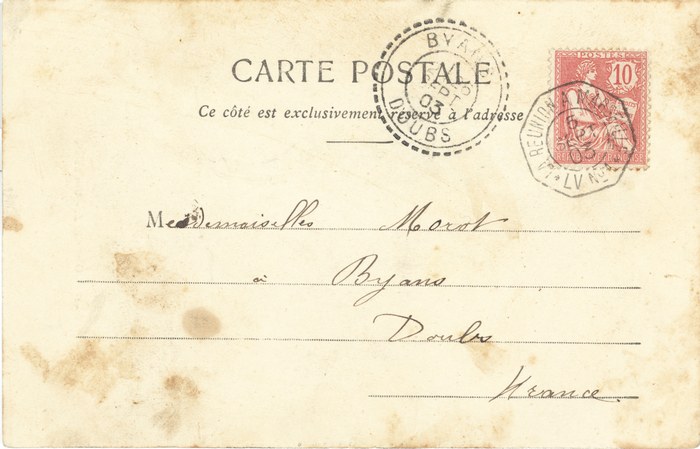 CARTE POSTALE
Ce côté est exclusivement réservé à l'adresse
BYANS
SEPT
03
DOUBS
POSTES
10
RÉPUBLIQUE FRANÇAISE
LA REUNION A MARSEILLE
LV No
Mesdemoiselles Morot
à Byans
Doubs
France